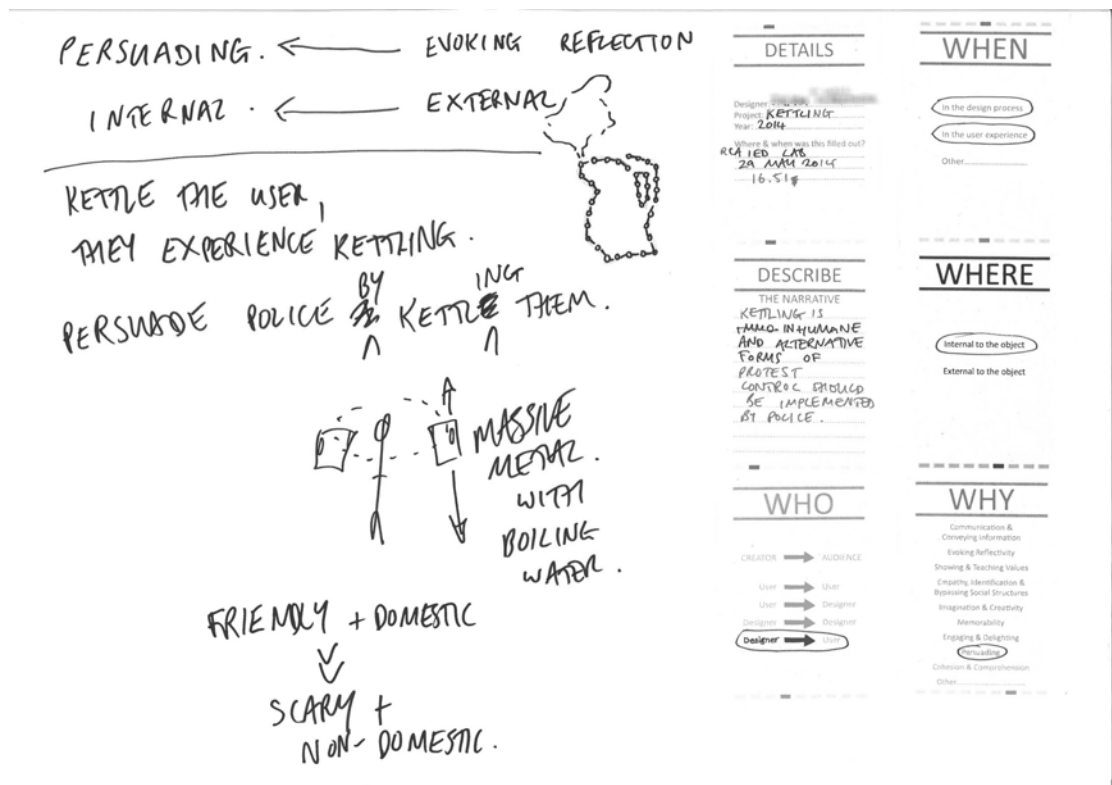 PERSUADING. ← EVOKING REFLECTION
INTERNAL. ← EXTERNAL
KETTLE THE USER,
THEY EXPERIENCE KETTLING.
BY ING
PERSUADE POLICE KETTLE THEM.
MASSIVE
METAL.
WITH
BOILING
WATER.
FRIENDLY + DOMESTIC
SCARY +
NON-DOMESTIC.
DETAILS
Designer:
Project: KETTLING
Year: 2014
Where & when was this filled out?
RCA IED LAB
29 MAY 2014
16.51
DESCRIBE
THE NARRATIVE
KETTLING IS
INHUMANE
AND ALTERNATIVE
FORMS OF
PROTEST
CONTROL SHOULD
BE IMPLEMENTED
BY POLICE.
WHO
CREATOR → AUDIENCE
User → User
User → Designer
Designer → Designer
Designer → User
WHEN
In the design process
In the user experience
Other
WHERE
Internal to the object
External to the object
WHY
Communication &
Conveying Information
Evoking Reflectivity
Showing & Teaching Values
Empathy, Identification &
Bypassing Social Structures
Imagination & Creativity
Memorability
Engaging & Delighting
Persuading
Cohesion & Comprehension
Other